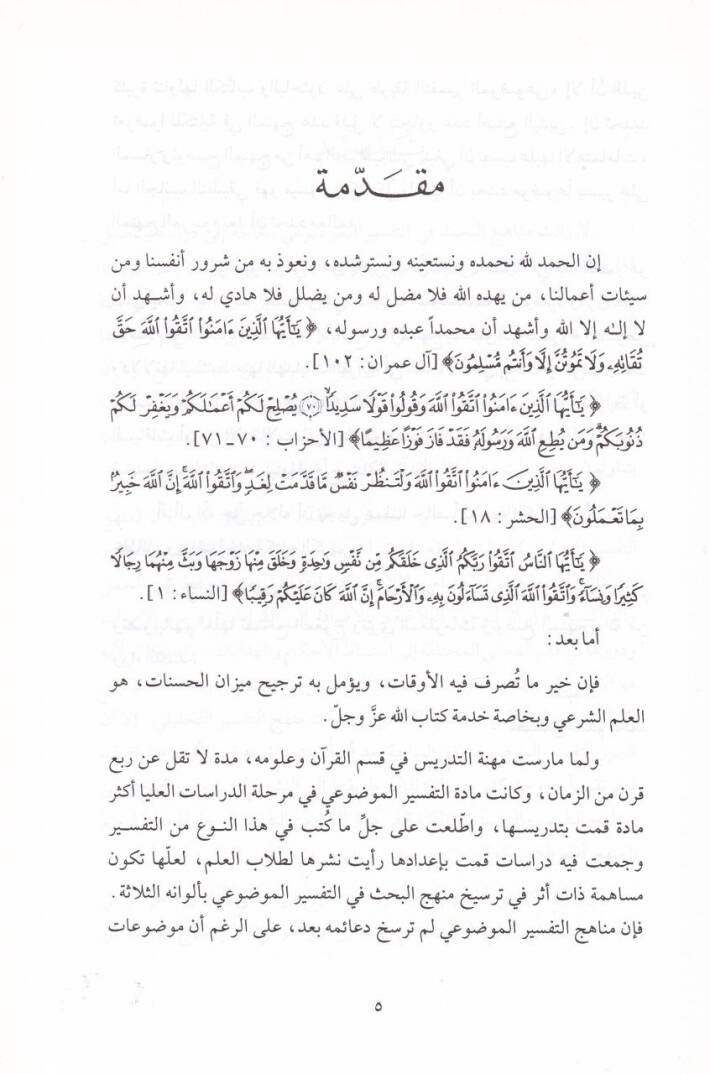 مقدّمة
إن الحمد لله نحمده ونستعينه ونسترشده، ونعوذ به من شرور أنفسنا ومن
سيئات أعمالنا، من يهده الله فلا مضل له ومن يضلل فلا هادي له، وأشهد أن
لا إلٰه إلا الله وأشهد أن محمداً عبده ورسوله، ﴿ يَٰٓأَيُّهَا الَّذِينَ ءَامَنُوا۟ اتَّقُوا۟ اللَّهَ حَقَّ
تُقَاتِهِۦ وَلَا تَمُوتُنَّ إِلَّا وَأَنتُم مُّسْلِمُونَ﴾ [آل عمران: ١٠٢].
﴿ يَٰٓأَيُّهَا الَّذِينَ ءَامَنُوا۟ اتَّقُوا۟ اللَّهَ وَقُولُوا۟ قَوْلًا سَدِيدًا ٧٠ يُصْلِحْ لَكُمْ أَعْمَٰلَكُمْ وَيَغْفِرْ لَكُمْ
ذُنُوبَكُمْ ۗ وَمَن يُطِعِ اللَّهَ وَرَسُولَهُۥ فَقَدْ فَازَ فَوْزًا عَظِيمًا﴾ [الأحزاب: ٧٠ـ٧١].
﴿ يَٰٓأَيُّهَا الَّذِينَ ءَامَنُوا۟ اتَّقُوا۟ اللَّهَ وَلْتَنظُرْ نَفْسٌ مَّا قَدَّمَتْ لِغَدٍ ۖ وَاتَّقُوا۟ اللَّهَ ۚ إِنَّ اللَّهَ خَبِيرٌۢ
بِمَا تَعْمَلُونَ﴾ [الحشر: ١٨].
﴿ يَٰٓأَيُّهَا النَّاسُ اتَّقُوا۟ رَبَّكُمُ الَّذِى خَلَقَكُم مِّن نَّفْسٍ وَٰحِدَةٍ وَخَلَقَ مِنْهَا زَوْجَهَا وَبَثَّ مِنْهُمَا رِجَالًا
كَثِيرًا وَنِسَآءً ۚ وَاتَّقُوا۟ اللَّهَ الَّذِى تَسَآءَلُونَ بِهِۦ وَالْأَرْحَامَ ۚ إِنَّ اللَّهَ كَانَ عَلَيْكُمْ رَقِيبًا﴾ [النساء: ١].
أما بعد:
فإن خير ما تُصرف فيه الأوقات، ويؤمل به ترجيح ميزان الحسنات، هو
العلم الشرعي وبخاصة خدمة كتاب الله عزَّ وجلّ.
ولما مارست مهنة التدريس في قسم القرآن وعلومه، مدة لا تقل عن ربع
قرن من الزمان، وكانت مادة التفسير الموضوعي في مرحلة الدراسات العليا أكثر
مادة قمت بتدريسها، واطّلعت على جلِّ ما كُتب في هذا النوع من التفسير
وجمعت فيه دراسات قمت بإعدادها رأيت نشرها لطلاب العلم، لعلّها تكون
مساهمة ذات أثر في ترسيخ منهج البحث في التفسير الموضوعي بألوانه الثلاثة.
فإن مناهج التفسير الموضوعي لم ترسخ دعائمه بعد، على الرغم أن موضوعات
٥